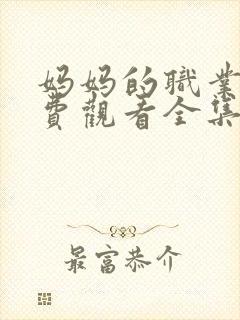 妈妈的職業
費觀看全集
最富恭介